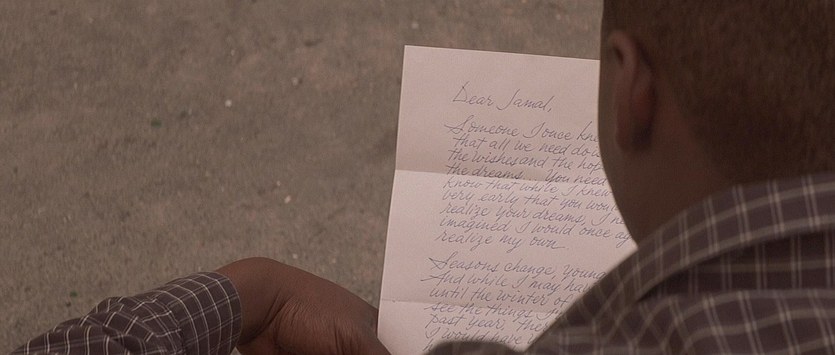 Dear Jamal,
Someone I once kne
that all we need do is
the wishes and the hop
the dreams. You need
know that while I knew
very early that you woul
realize your dreams, I ne
imagined I would once ag
realize my own.
Seasons change, young
And while I may hav
until the winter of
see the things I
past year, the
I would have